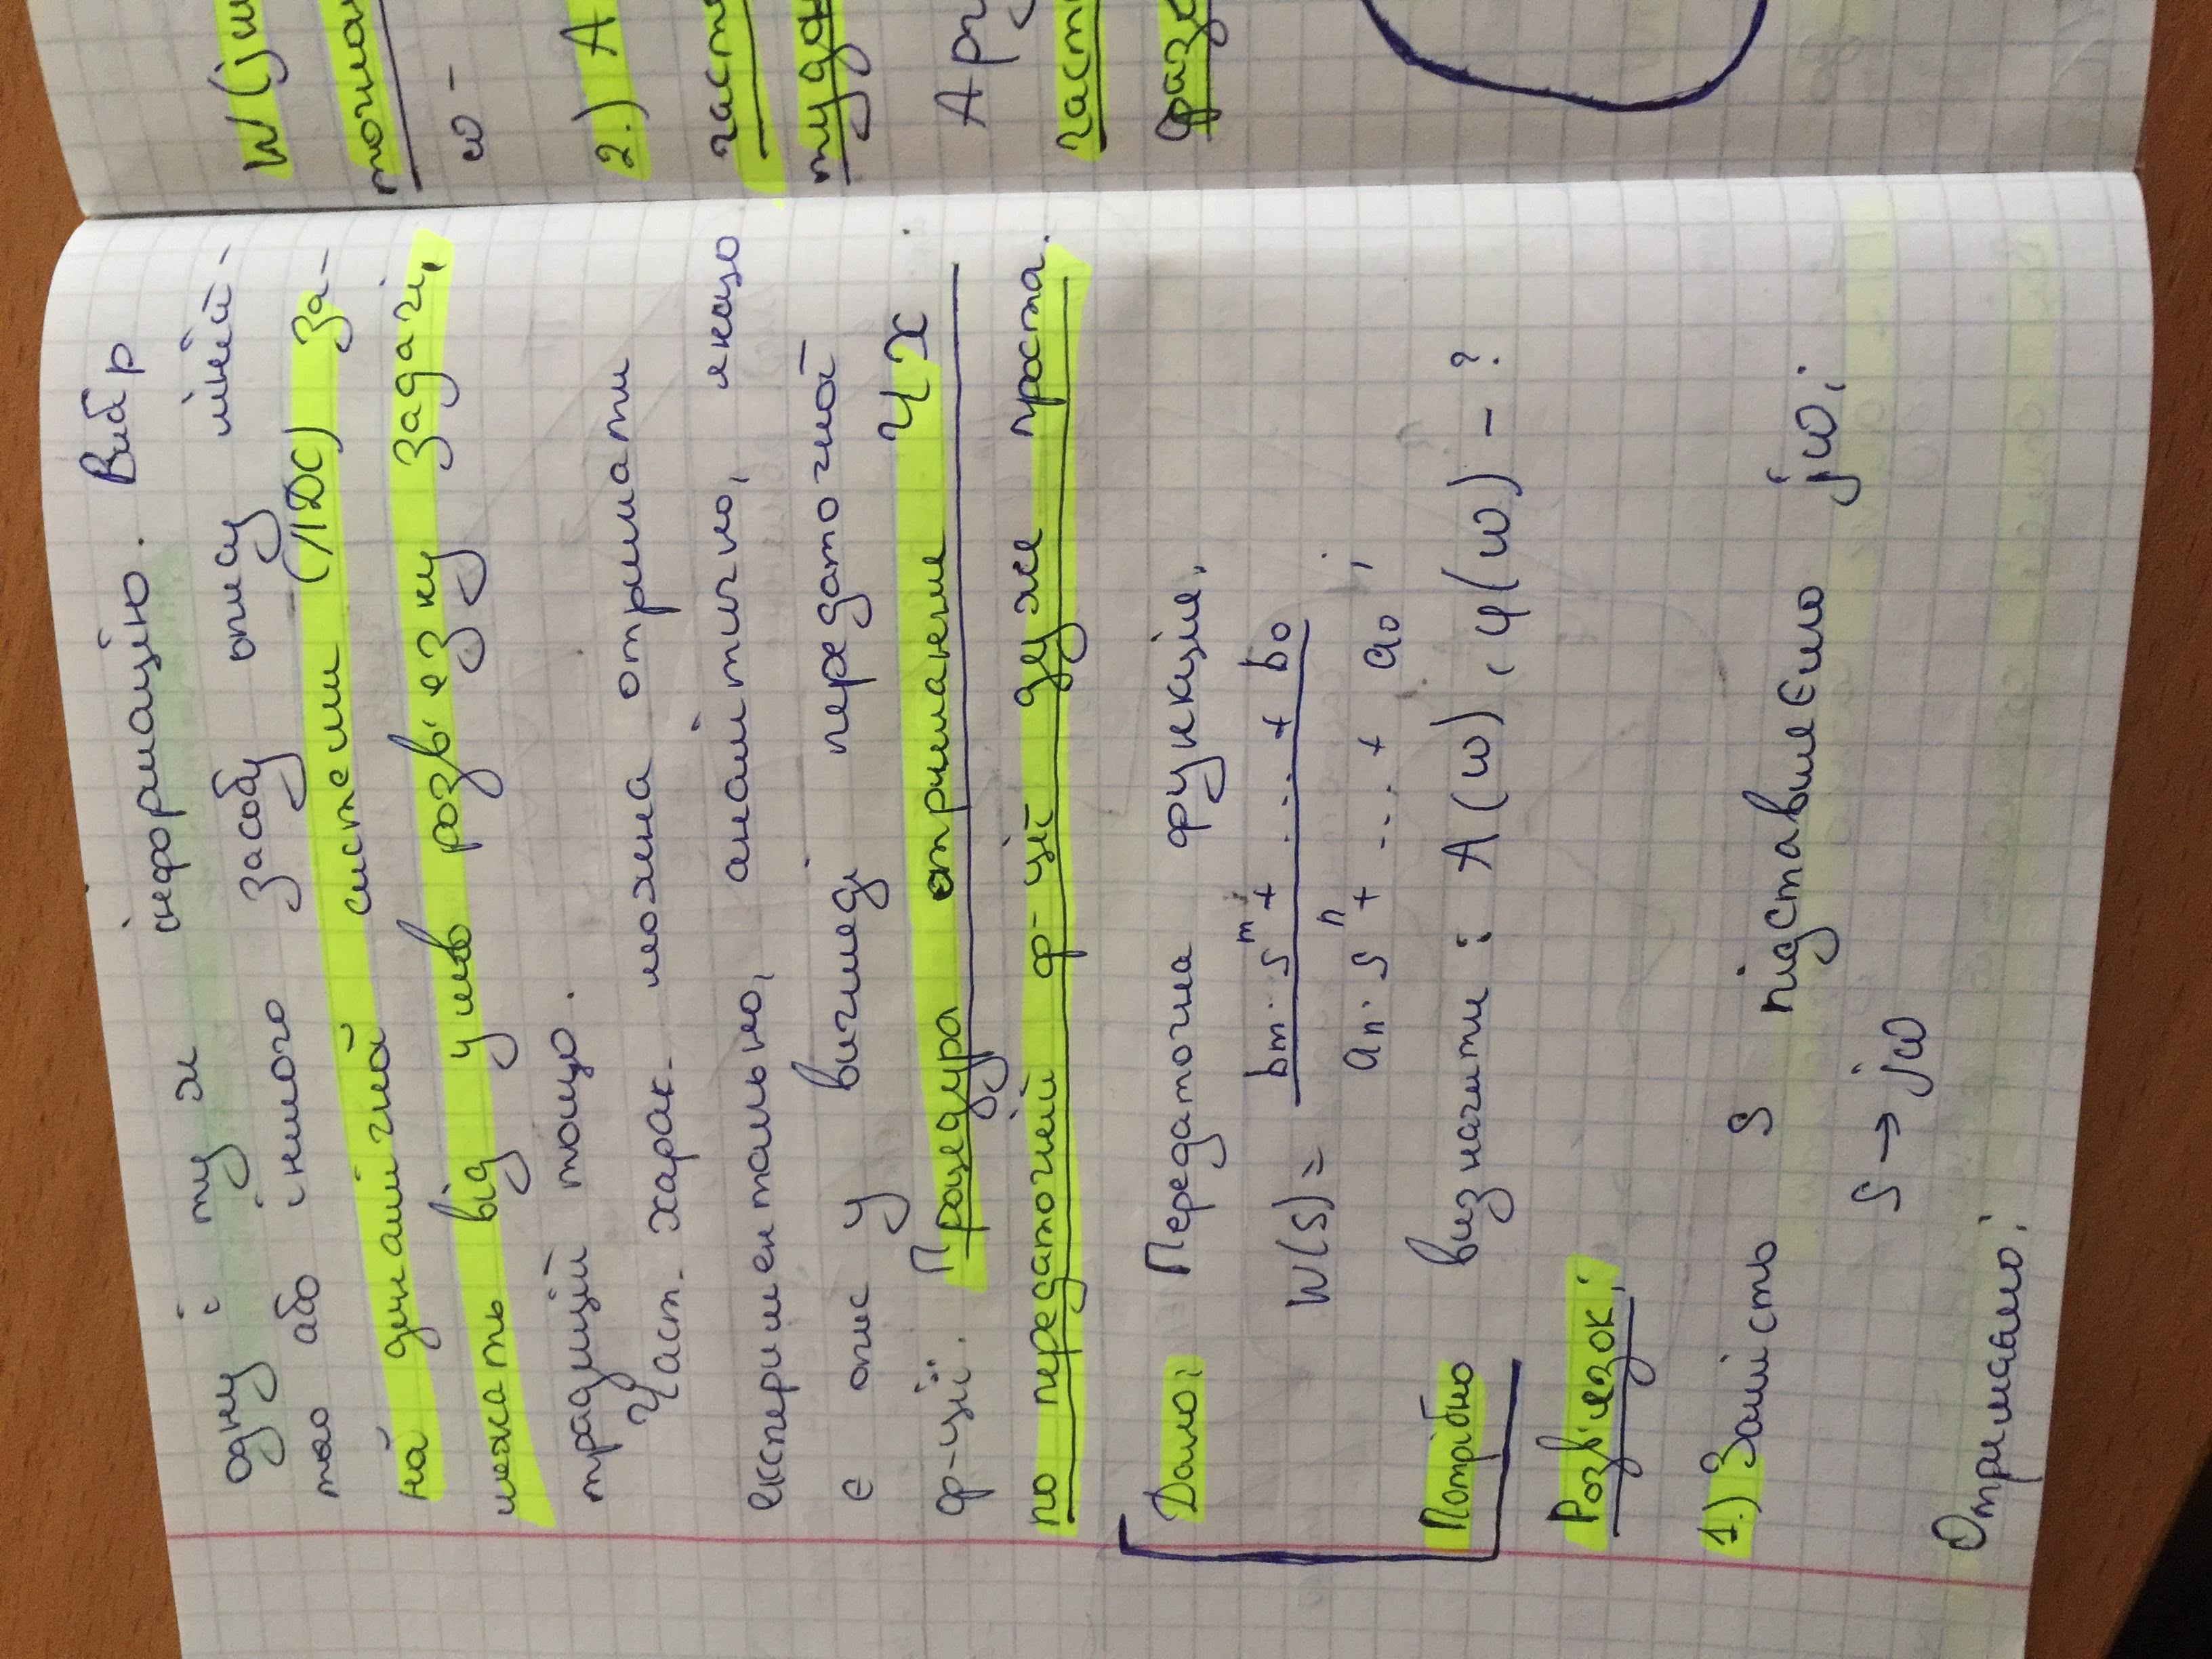 одну і ту ж інформацію. Вибір
того або іншого засобу опису ліній-
ної динамічної системи (ЛДС) за-
лежать від умов розв'язку задачі,
традицій тощо.
Част. харак. можна отримати
експериментально, аналітично, якщо
є опис у вигляді передаточної
ф-ції. Процедура отримання ЧХ
по передаточній ф-ції дуже проста.
Дано: Передаточна функція.
W(s) = (bm · s^m + ... + b0) / (an · s^n + ... + a0);
Потрібно визначити: A(ω), φ(ω) - ?
Розв'язок:
1.) Замість S підставляємо jω:
S → jω
Отримаємо:
W(jω
точна
ω -
2.) A
част
туда
Арг
част
фазо